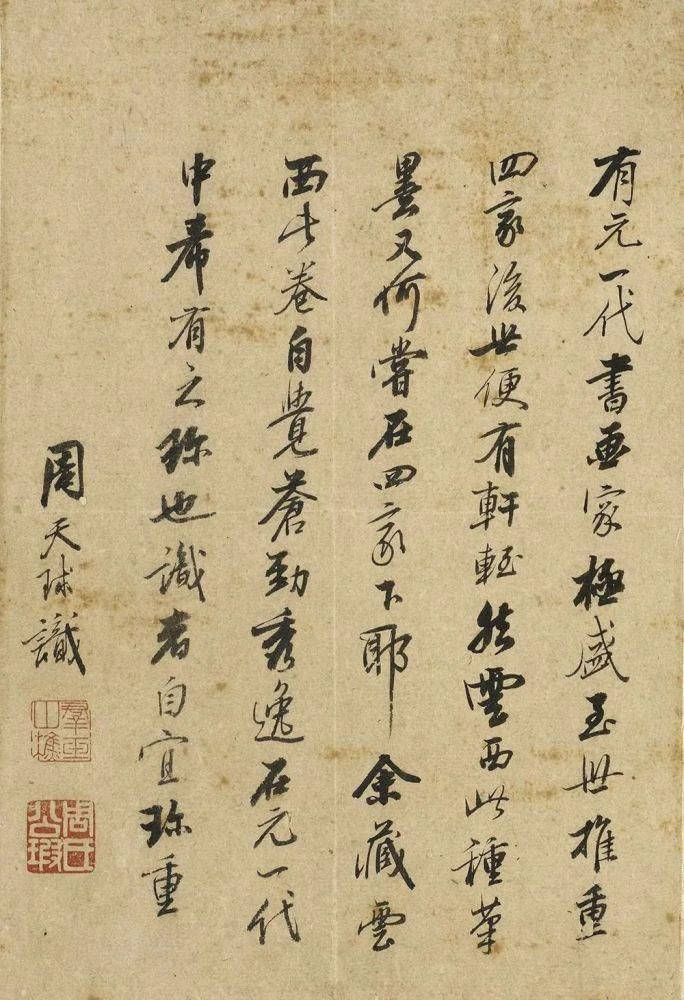 有元一代書画家極盛至世推重
四家後世便有軒輊然雲西此種筆
墨又何嘗在四家下耶余藏雲
西此卷自覺蒼勁秀逸在元一代
中希有之珍也識者自宜珍重
周天球識
羣玉山樵
周氏公瑕